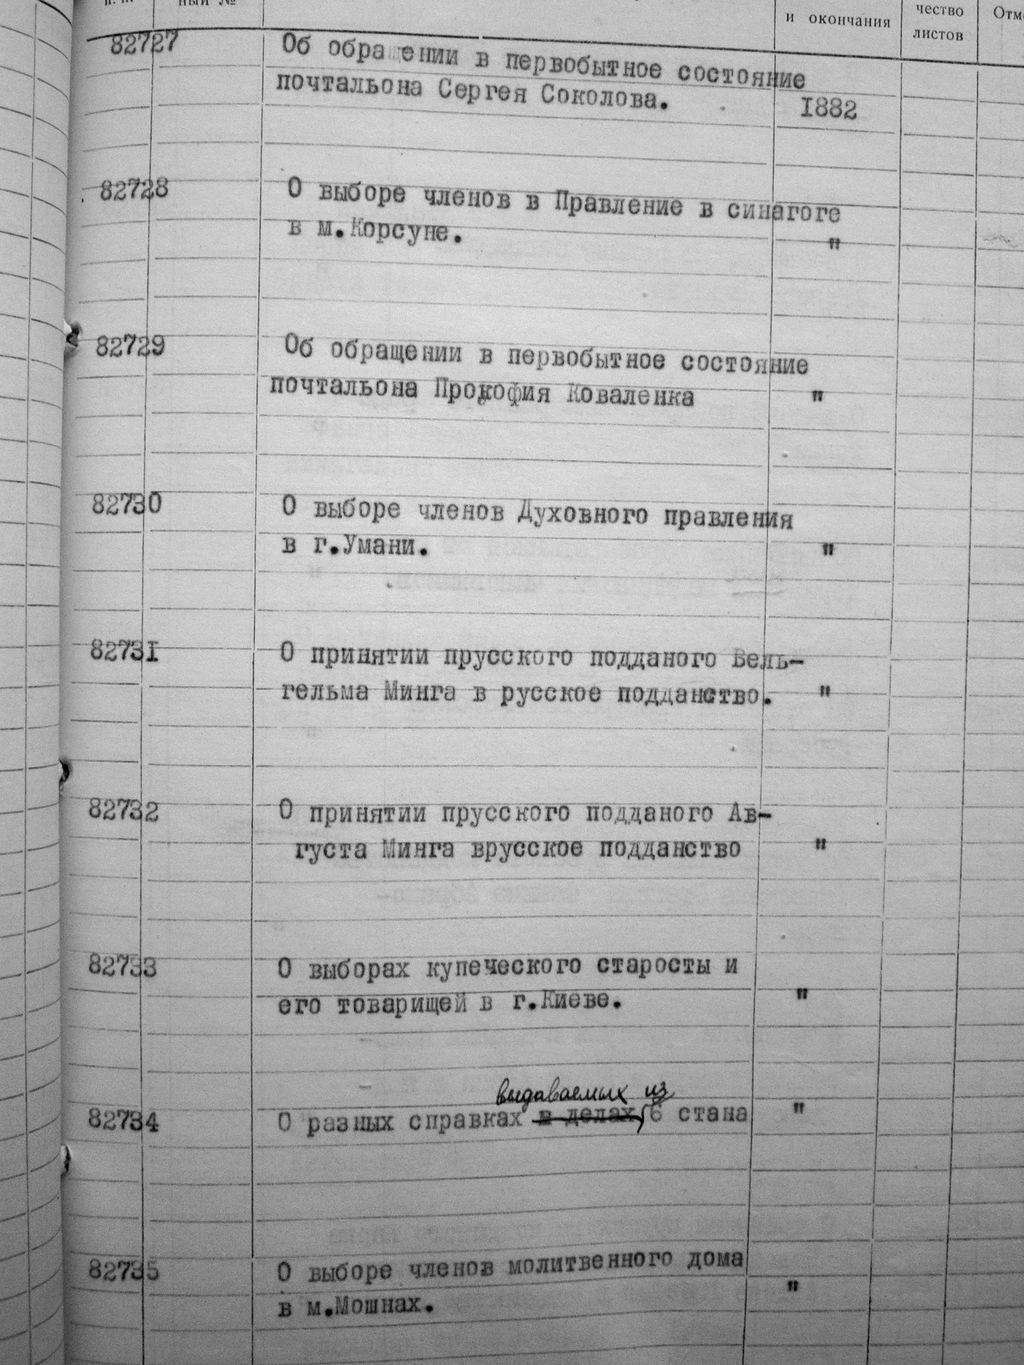 и окончания
чество
листов
82727 Об обращении в первобытное состояние
почтальона Сергея Соколова. 1882
82728 О выборе членов в Правление в синагоге
в м.Корсуне. "
82729 Об обращении в первобытное состояние
почтальона Прокофия Коваленка "
82730 О выборе членов Духовного правления
в г.Умани. "
82731 О принятии прусского подданого Вель-
гельма Минга в русское подданство. "
82732 О принятии прусского подданого Ав-
густа Минга врусское подданство "
82733 О выборах купеческого старосты и
его товарищей в г.Киеве. "
выдаваемых из
82734 О разных справках в делах 6 стана "
82735 О выборе членов молитвенного дома
в м.Мошнах. "